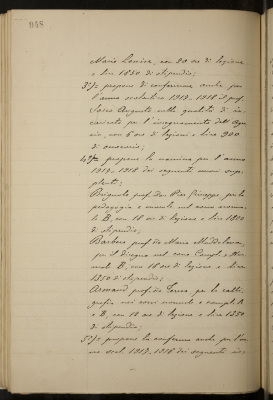 Maria Louisa, con 20 ore di lezione
e lire 1850 di stipendio;
3°/ propone di confermare anche per
l'anno scolastico 1917-1918 il prof.
Augusto nella qualità di in-
caricato per l'insegnamento dell'
con 6 ore di lezioni e lire 900
di
4°/ propone la nomina per l'anno
1917-1918 dei seguenti nuovi sup-
plenti:
prof. don Pier Giuseppe, per la
pedagogia e morale nel corso norma-
le B, con 18 ore di lezione e lire 1850
di stipendio;
Barbero prof.sa Maria Maddalena,
per il disegno nel corso Compl. e Nor-
male B, con 18 ore di lezione e lire
1350 di stipendio;
prof.sa per la calli-
grafia nei corsi normale e compl. A
e B, con 18 ore di lezione e lire 1350
di stipendio;
5°/ propone la conferma anche per l'an-
no scol. 1917-1918 dei seguenti